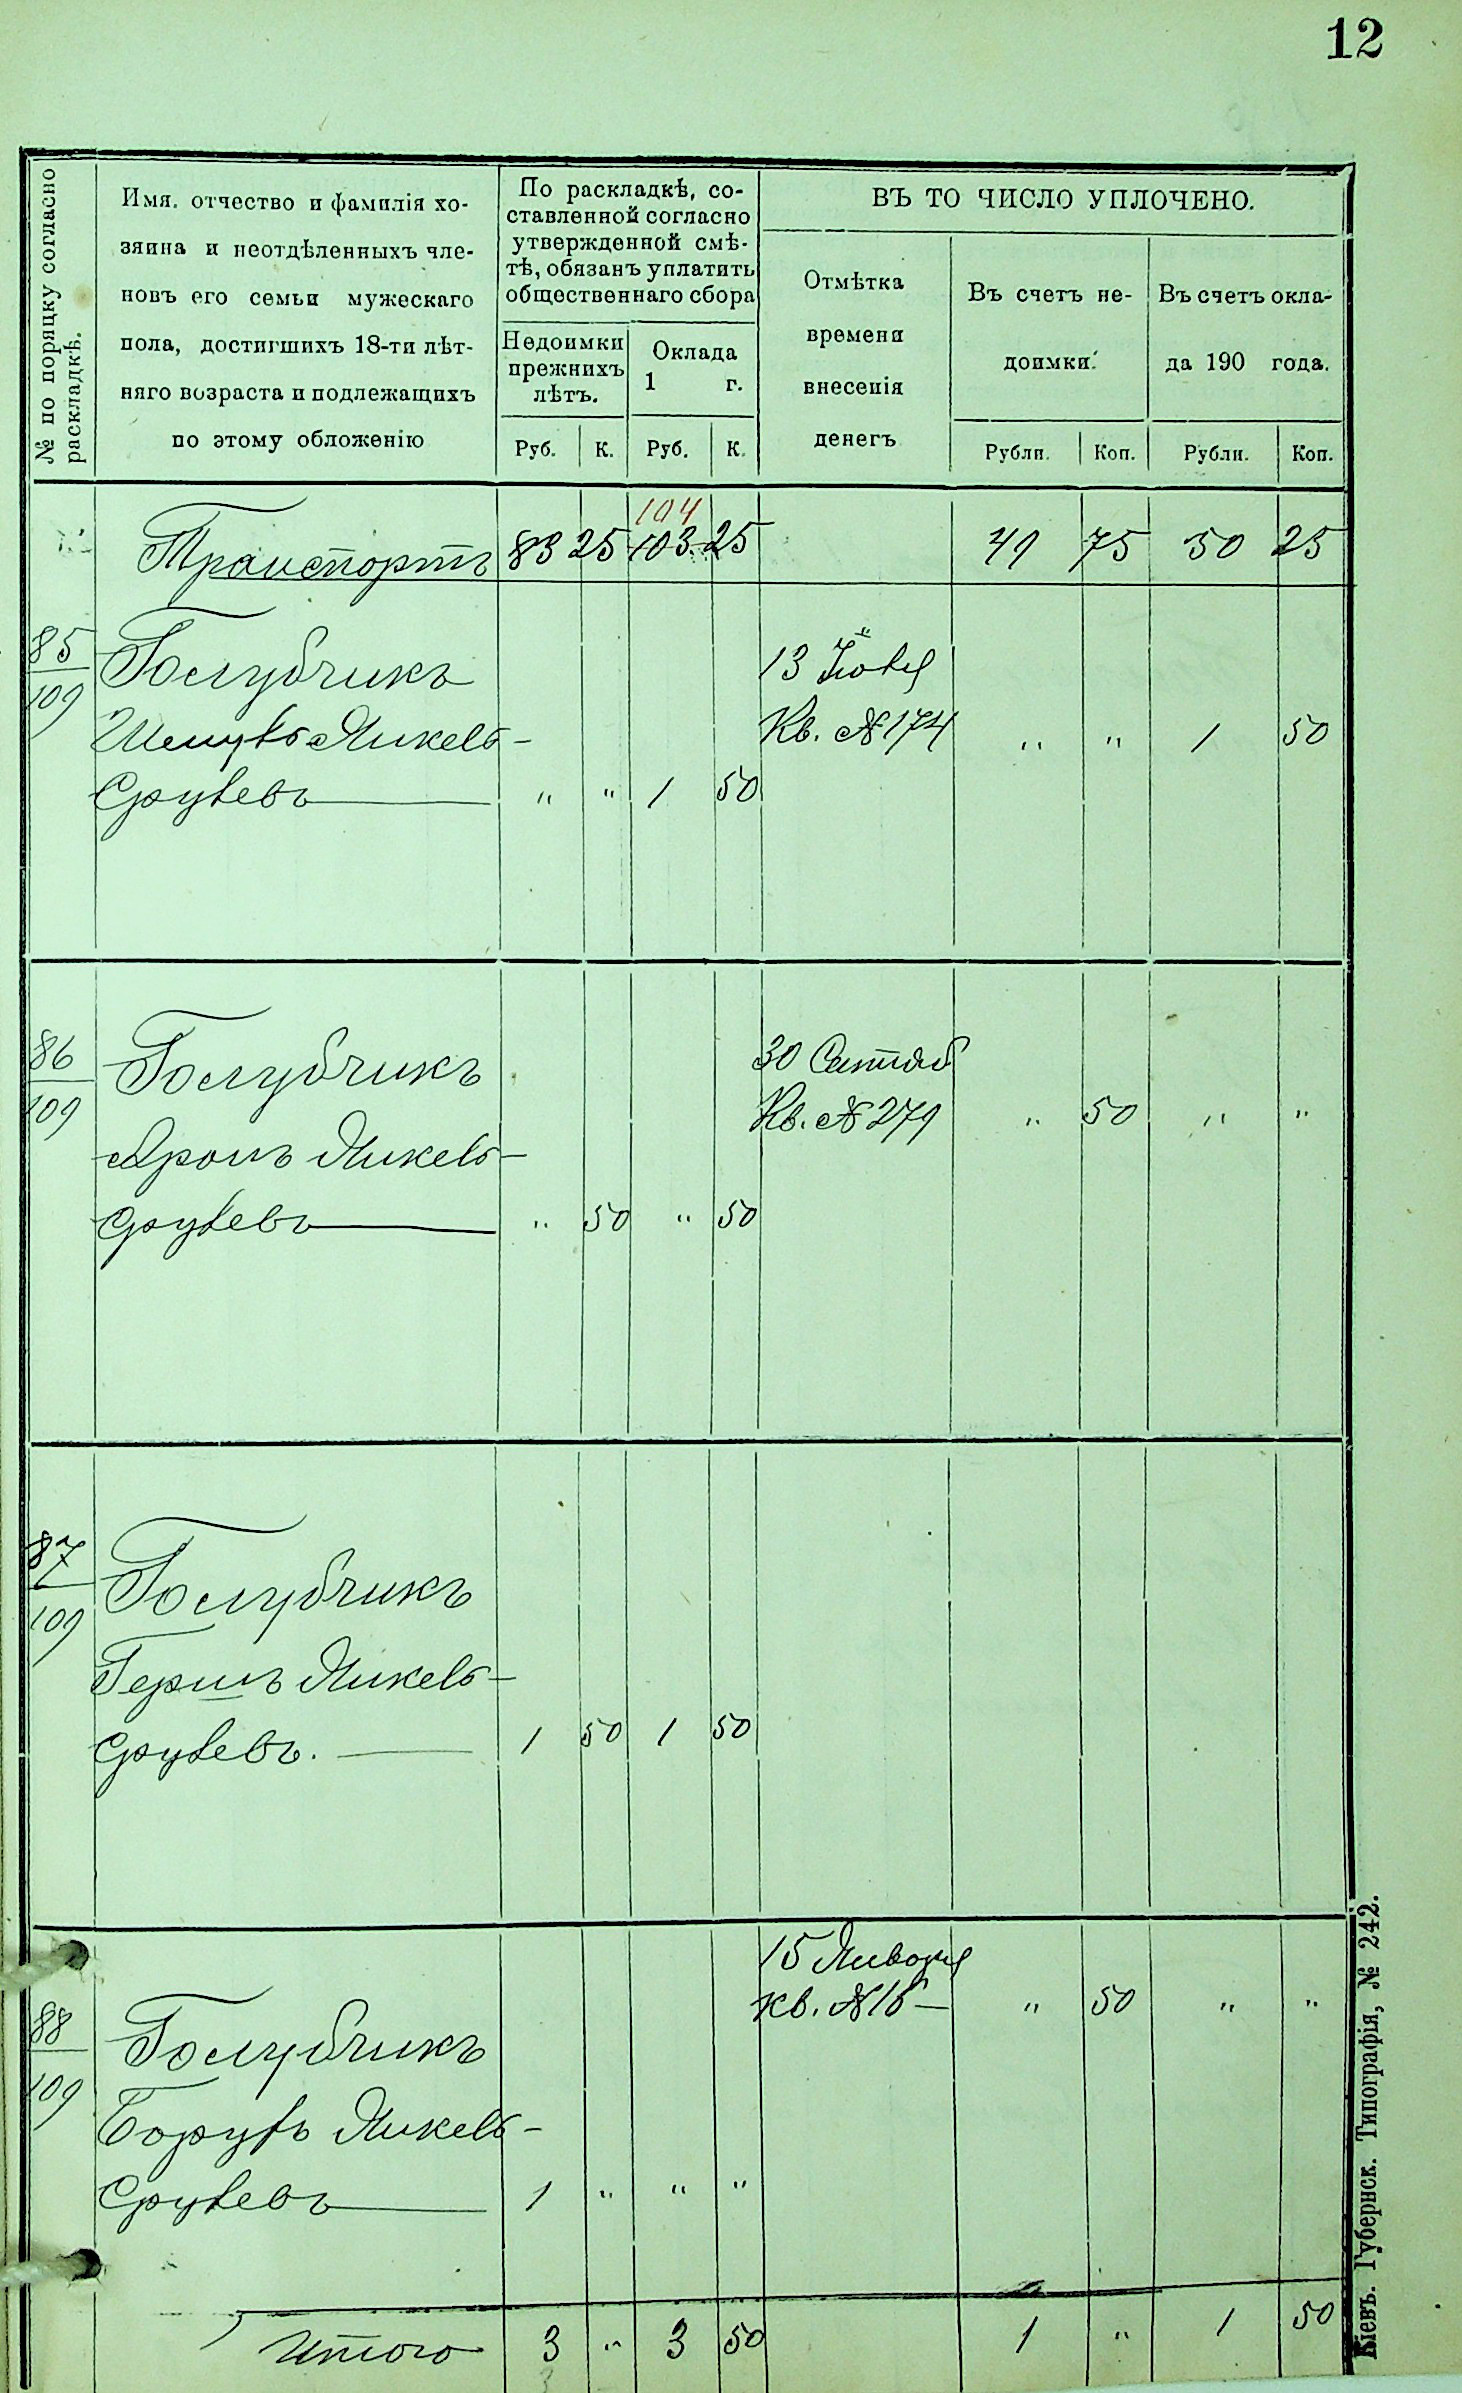 12
№ по порядку согласно
раскладкѣ.
Имя, отчество и фамилія хо-
зяина и неотдѣленныхъ чле-
новъ его семьи мужескаго
пола, достигшихъ 18-ти лѣт-
няго возраста и подлежащихъ
по этому обложенію
По раскладкѣ, со-
ставленной согласно
утвержденной смѣ-
тѣ, обязанъ уплатить
общественнаго сбора
Недоимки
прежнихъ
лѣтъ.
Оклада
1 г.
Руб. К. Руб. К.
ВЪ ТО ЧИСЛО УПЛОЧЕНО.
Отмѣтка
времени
внесенія
денегъ
Въ счетъ не-
доимки.
Въ счетъ окла-
да 190 года.
Рубли. Коп. Рубли. Коп.
104
Транспортъ 83 25 103 25 41 75 50 25
85
109
Голубчикъ
Шмуль Янкель-
Срулевъ " " 1 50
13
Кв. № 174 " " 1 50
86
109
Голубчикъ
Аронъ Янкель-
Срулевъ " 50 " 50
30 Сентяб
Кв. № 279 " 50 " "
87
109
Голубчикъ
Гершъ Янкель-
Срулевъ. 1 50 1 50
88
109
Голубчикъ
Борухъ Янкель-
Срулевъ 1 " " "
15 Января
кв. № 16 — " 50 " "
Итого 3 " 3 50 1 " 1 50
Кіевъ. Губернск. Типографія, № 242.